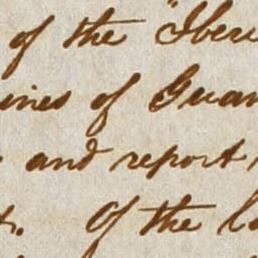 of the "Iber
ines of Guan
and report
t. Of the l